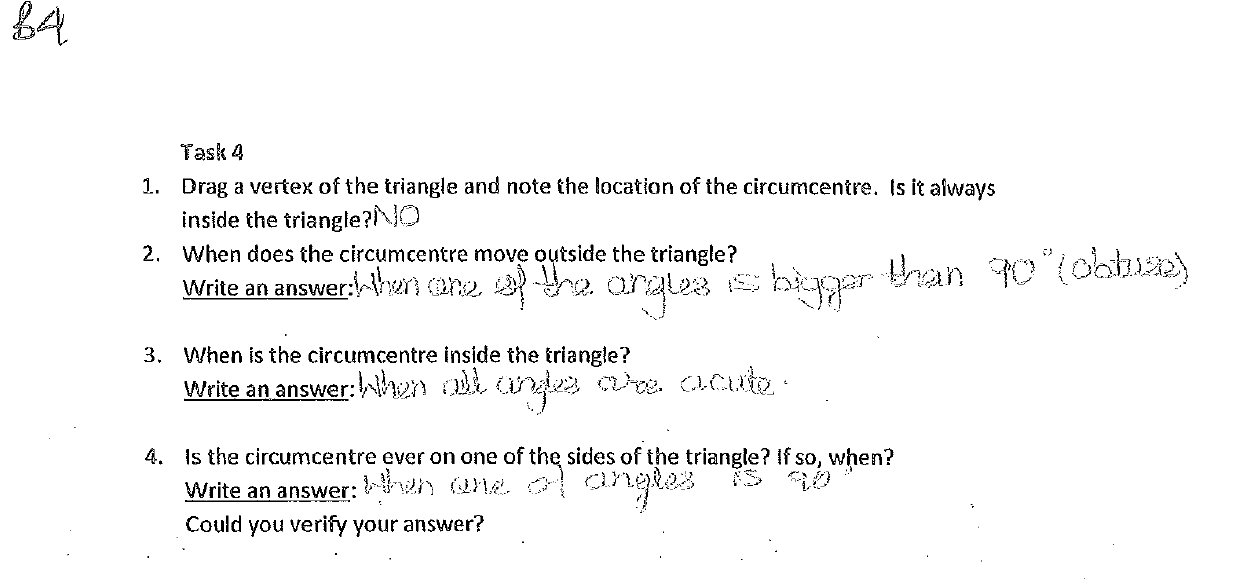 B4
Task 4
1. Drag a vertex of the triangle and note the location of the circumcentre. Is it always
inside the triangle? NO
2. When does the circumcentre move outside the triangle?
Write an answer: When one of the angles is bigger than 90° (obtuse)
3. When is the circumcentre inside the triangle?
Write an answer: When all angles are acute.
4. Is the circumcentre ever on one of the sides of the triangle? If so, when?
Write an answer: When one of angles is 90°
Could you verify your answer?